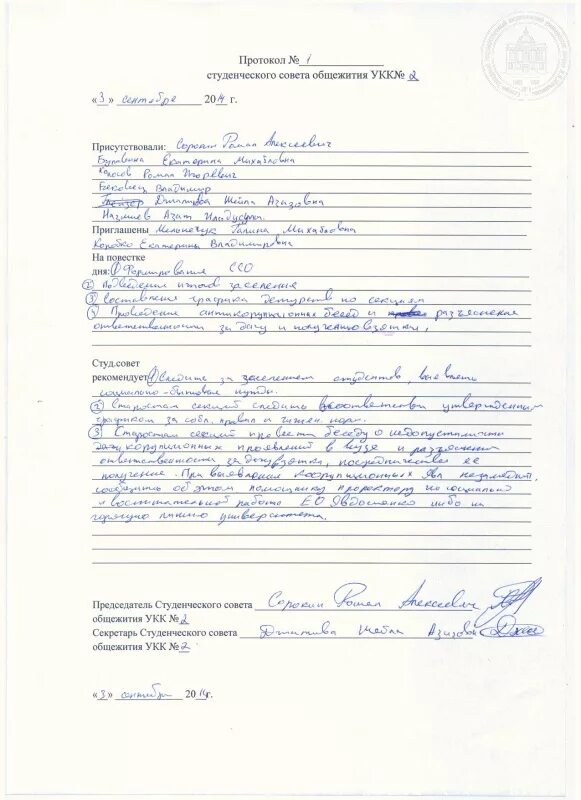 Протокол № 1
студенческого совета общежития УКК№ 2
«3» сентября 2014 г.
Присутствовали: Сорокин Роман Алексеевич
Булавина Екатерина Михайловна
Колосов Роман Игоревич
Бековец Владимир
Джипова Шейла Азизовна
Нагиев Азат
Приглашены Мельничук Галина Михайловна
Коробко Екатерина Владимировна
На повестке
дня: 1 Формирование ССО
2 Подведение итогов заселения
3 Составление графика дежурств по секциям
4 Проведение антикоррупционных бесед и разъяснения
ответственности за дачу и получению взятки.
Студ.совет
рекомендует 1 Следить за заселением студентов, выявлять
социально-бытовые нужды.
2 Старостам секций следить в соответствии утвержденным
графиком за собл. правил и гигиен. норм.
3 Старостам секций провести беседу о недопустимости
коррупционных проявлений в вузе и разъяснении
ответственности за дачу взятки, посредничество её
получение. При выявлении коррупционных незамедлит.
сообщить об этом помощнику проректору по социальной
и воспитательной работе Е.О. Явдошенко либо на
горячую линию университета.
Председатель Студенческого совета Сорокин Роман Алексеевич
общежития УКК № 2
Секретарь Студенческого совета Джипова Шейла Азизовна
общежития УКК № 2
«3» сентября 2014г.